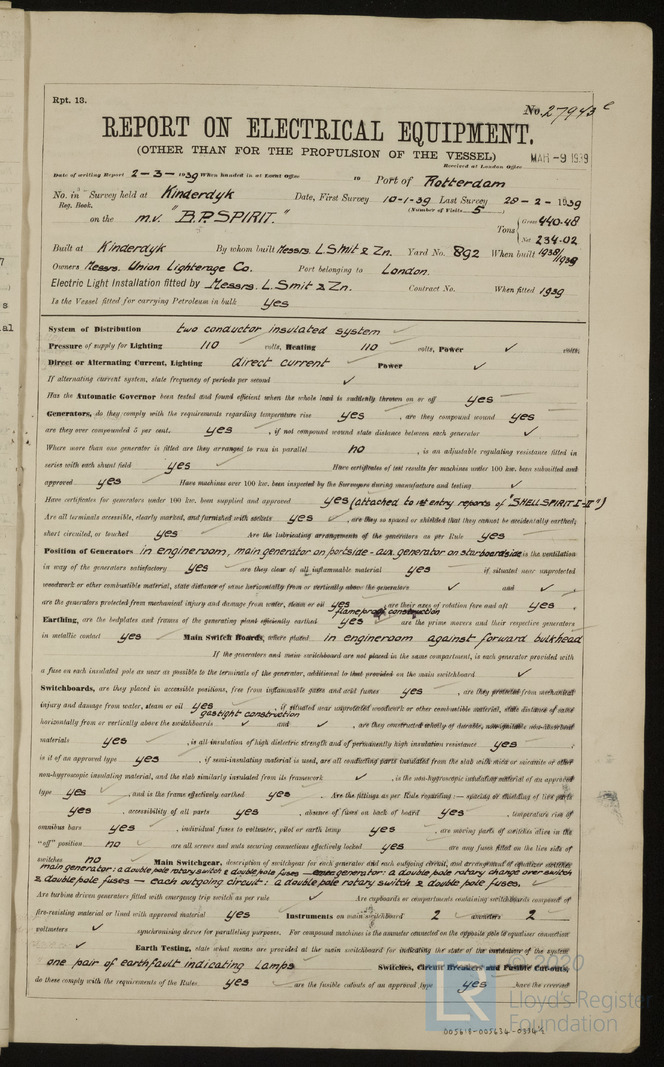 Rpt. 13.
No. 27943 c
REPORT ON ELECTRICAL EQUIPMENT.
(OTHER THAN FOR THE PROPULSION OF THE VESSEL)
MAR -9 1939
Received at London Office
Date of writing Report 2-3-1939 When handed in at Local Office 19 Port of Rotterdam
No. in Survey held at Kinderdyk Date, First Survey 10-1-39 Last Survey 28-2-1939
Reg. Book. (Number of Visits 5)
on the m.v. "B.P. SPIRIT." Tons { Gross 440.48
Net 234.02
Built at Kinderdyk By whom built Messrs. L. Smit & Zn. Yard No. 892 When built 1938/1939
Owners Messrs. Union Lighterage Co. Port belonging to London.
Electric Light Installation fitted by Messrs. L. Smit & Zn. Contract No. When fitted 1939
Is the Vessel fitted for carrying Petroleum in bulk yes
System of Distribution two conductor insulated system ✓
Pressure of supply for Lighting 110 volts, Heating 110 volts, Power ✓ volts.
Direct or Alternating Current, Lighting direct current ✓ Power ✓
If alternating current system, state frequency of periods per second ✓
Has the Automatic Governor been tested and found efficient when the whole load is suddenly thrown on or off yes
Generators, do they comply with the requirements regarding temperature rise yes , are they compound wound yes
are they over compounded 5 per cent. yes , if not compound wound state distance between each generator ✓
Where more than one generator is fitted are they arranged to run in parallel no , is an adjustable regulating resistance fitted in
series with each shunt field yes Have certificates of test results for machines under 100 kw. been submitted and
approved yes Have machines over 100 kw. been inspected by the Surveyors during manufacture and testing ✓
Have certificates for generators under 100 kw. been supplied and approved yes (attached to 1st entry reports of "SHELLSPIRIT I-II")
Are all terminals accessible, clearly marked, and furnished with sockets yes , are they so spaced or shielded that they cannot be accidentally earthed,
short circuited, or touched yes Are the lubricating arrangements of the generators as per Rule yes
Position of Generators in engineroom, main generator on portside - aux. generator on starboardside is the ventilation
in way of the generators satisfactory yes are they clear of all inflammable material yes if situated near unprotected
woodwork or other combustible material, state distance of same horizontally from or vertically above the generators ✓ and ✓
are the generators protected from mechanical injury and damage from water, steam or oil yes , are their axes of rotation fore and aft yes
flameproof construction
Earthing, are the bedplates and frames of the generating plant efficiently earthed yes are the prime movers and their respective generators
in metallic contact yes Main Switch Boards, where placed in engineroom against forward bulkhead
If the generators and main switchboard are not placed in the same compartment, is each generator provided with
a fuse on each insulated pole as near as possible to the terminals of the generator, additional to that provided on the main switchboard ✓
Switchboards, are they placed in accessible positions, free from inflammable gases and acid fumes yes , are they protected from mechanical
injury and damage from water, steam or oil yes , if situated near unprotected woodwork or other combustible material, state distance of same
gastight construction
horizontally from or vertically above the switchboards ✓ and ✓ , are they constructed wholly of durable, non-ignitable non-absorbent
materials yes , is all insulation of high dielectric strength and of permanently high insulation resistance yes
is it of an approved type yes , if semi-insulating material is used, are all conducting parts insulated from the slab with mica or micanite or other
non-hygroscopic insulating material, and the slab similarly insulated from its framework ✓ , is the non-hygroscopic insulating material of an approved
type yes , and is the frame effectively earthed yes Are the fittings as per Rule regarding :— spacing or shielding of live parts
yes , accessibility of all parts yes , absence of fuses on back of board yes , temperature rise of
omnibus bars yes , individual fuses to voltmeter, pilot or earth lamp yes , are moving parts of switches alive in the
"off" position no are all screws and nuts securing connections effectively locked yes are any fuses fitted on the live side of
switches no Main Switchgear, description of switchgear for each generator and each outgoing circuit, and arrangement of equalizer switches
main generator: a double pole rotary switch & double pole fuses — aux. generator: a double pole rotary change over switch
& double pole fuses — each outgoing circuit : a double pole rotary switch & double pole fuses.
Are turbine driven generators fitted with emergency trip switch as per rule ✓ Are cupboards or compartments containing switchboards composed of
fire-resisting material or lined with approved material yes Instruments on main switchboard 2 ammeters 2
voltmeters ✓ synchronising device for paralleling purposes. For compound machines is the ammeter connected on the opposite pole to equaliser connection
✓ Earth Testing, state what means are provided at the main switchboard for indicating the state of the insulation of the system
one pair of earthfault indicating lamps Switches, Circuit Breakers and Fusible Cut-outs,
do these comply with the requirements of the Rules yes are the fusible cutouts of an approved type yes , have the reversed
© 2020
Lloyd's Register
Foundation
LR
005618-005634-0334½